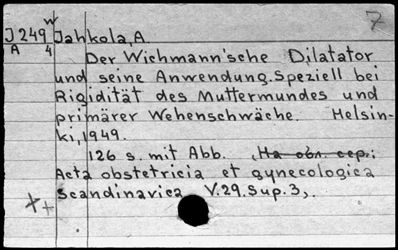 7
W
J 249 Jahkola, A
A 4
Der Wichmann'sche Dilatator
und seine Anwendung. Speziell bei
Rigidität des Muttermundes und
primärer Wehenschwäche. Helsin-
ki, 1949.
126 s. mit Abb. (На обл. сер.:
Acta obstetricia et gynecologica
scandinavica V.29. Sup. 3,.